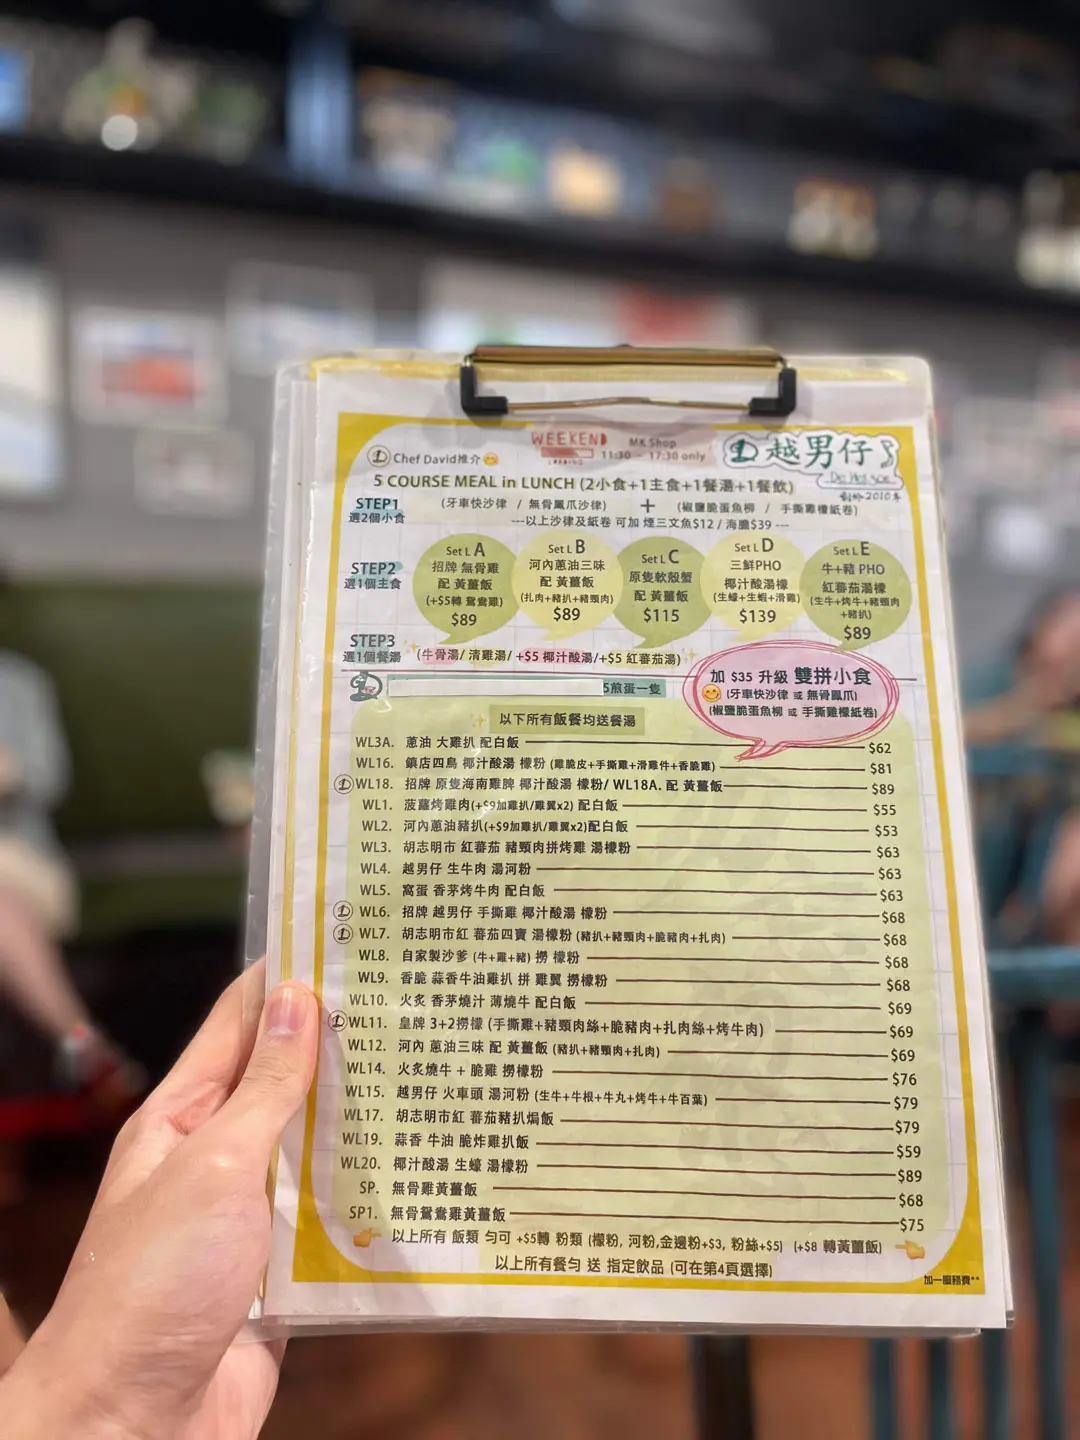 Chef David推介
WEEKEND
MK Shop
11:30 - 17:30 only
越男仔
創於2010年
5 COURSE MEAL in LUNCH (2小食+1主食+1餐湯+1餐飲)
STEP1
選2個小食
(牙車快沙律 / 無骨鳳爪沙律) + (椒鹽脆蛋魚柳 / 手撕雞檬紙卷)
---以上沙律及紙卷 可加 煙三文魚$12 / 海膽$39 ---
STEP2
選1個主食
Set L A
招牌 無骨雞
配 黃薑飯
(+$5轉 鴛鴦雞)
$89
Set L B
河內蔥油三味
配 黃薑飯
(扎肉+豬扒+豬頸肉)
$89
Set L C
原隻軟殼蟹
配 黃薑飯
$115
Set L D
三鮮PHO
椰汁酸湯檬
(生蠔+生蝦+滑雞)
$139
Set L E
牛+豬 PHO
紅蕃茄湯檬
(生牛+烤牛+豬頸肉
+豬扒)
$89
STEP3
選1個餐湯
(牛骨湯/ 清雞湯/ +$5 椰汁酸湯/+$5 紅蕃茄湯)
加 $35 升級 雙拼小食
(牙車快沙律 或 無骨鳳爪)
(椒鹽脆蛋魚柳 或 手撕雞檬紙卷)
5煎蛋一隻
以下所有飯餐均送餐湯
WL3A. 蔥油 大雞扒 配白飯 $62
WL16. 鎮店四鳥 椰汁酸湯 檬粉 (雞脆皮+手撕雞+滑雞件+香脆雞) $81
WL18. 招牌 原隻海南雞脾 椰汁酸湯 檬粉/ WL18A. 配 黃薑飯 $89
WL1. 菠蘿烤雞肉(+$9加雞扒/雞翼x2) 配白飯 $55
WL2. 河內蔥油豬扒(+$9加雞扒/雞翼x2)配白飯 $53
WL3. 胡志明市 紅蕃茄 豬頸肉拼烤雞 湯檬粉 $63
WL4. 越男仔 生牛肉 湯河粉 $63
WL5. 窩蛋 香茅烤牛肉 配白飯 $63
WL6. 招牌 越男仔 手撕雞 椰汁酸湯 檬粉 $68
WL7. 胡志明市紅 蕃茄四寶 湯檬粉 (豬扒+豬頸肉+脆豬肉+扎肉) $68
WL8. 自家製沙爹 (牛+雞+豬) 撈 檬粉 $68
WL9. 香脆 蒜香牛油雞扒 拼 雞翼 撈檬粉 $68
WL10. 火炙 香茅燒汁 薄燒牛 配白飯 $69
WL11. 皇牌 3+2撈檬 (手撕雞+豬頸肉絲+脆豬肉+扎肉絲+烤牛肉) $69
WL12. 河內 蔥油三味 配 黃薑飯 (豬扒+豬頸肉+扎肉) $69
WL14. 火炙燒牛 + 脆雞 撈檬粉 $76
WL15. 越男仔 火車頭 湯河粉 (生牛+牛根+牛丸+烤牛+牛百葉) $79
WL17. 胡志明市紅 蕃茄豬扒焗飯 $79
WL19. 蒜香 牛油 脆炸雞扒飯 $59
WL20. 椰汁酸湯 生蠔 湯檬粉 $89
SP. 無骨雞黃薑飯 $68
SP1. 無骨鴛鴦雞黃薑飯 $75
以上所有 飯類 勻可 +$5轉 粉類 (檬粉, 河粉,金邊粉+$3, 粉絲+$5) (+$8 轉黃薑飯)
以上所有餐勻 送 指定飲品 (可在第4頁選擇)
加一服務費**